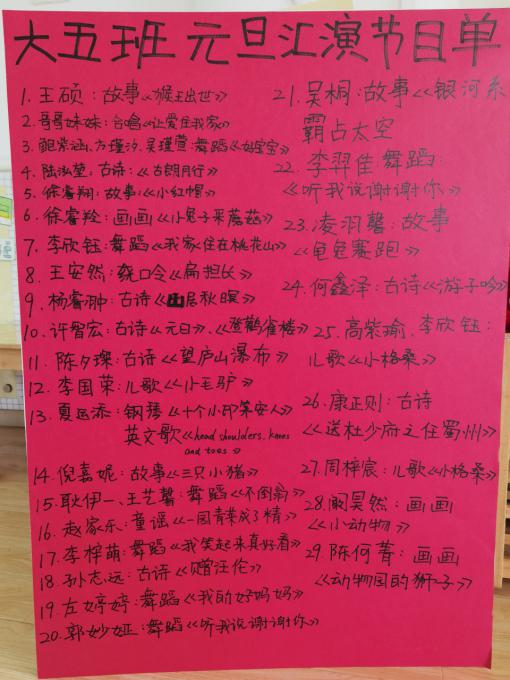 大五班 元旦汇演节目单
1. 王硕：故事《猴王出世》
2. 哥哥妹妹：合唱《让爱住我家》
3. 鲍紫涵、方瑾汐、吴瑾萱：舞蹈《好宝宝》
4. 陆泓堃：古诗《古朗月行》
5. 徐睿翔：故事《小红帽》
6. 徐睿羚：画画《小兔子采蘑菇》
7. 李欣钰：舞蹈《我家住在桃花山》
8. 王安然：绕口令《扁担长》
9. 杨睿翀：古诗《山居秋暝》
10. 许智宏：古诗《元日》、《登鹳雀楼》
11. 陈夕璨：古诗《望庐山瀑布》
12. 李国荣：儿歌《小毛驴》
13. 夏运添：钢琴《十个小印第安人》
英文歌《head shoulders, knees
and toes》
14. 倪嘉妮：故事《三只小猪》
15. 耿伊一、王艺馨：舞蹈《不倒翁》
16. 赵家乐：童谣《一园青菜成了精》
17. 李梓萌：舞蹈《我笑起来真好看》
18. 孙志远：古诗《赠汪伦》
19. 左婷婷：舞蹈《我的好妈妈》
20. 郭妙娅：舞蹈《听我说谢谢你》
21. 吴桐：故事《银河系
霸占太空
22. 李羿佳：舞蹈：
《听我说谢谢你》
23. 凌羽馨：故事
《龟兔赛跑》
24. 何鑫泽：古诗《游子吟》
25. 高紫瑜、李欣钰：
儿歌《小格桑》
26. 康正则：古诗
《送杜少府之任蜀州》
27. 周梓宸：儿歌《小格桑》
28. 阚昊然：画画
《小动物》
29. 陈何菁：画画
《动物园的狮子》